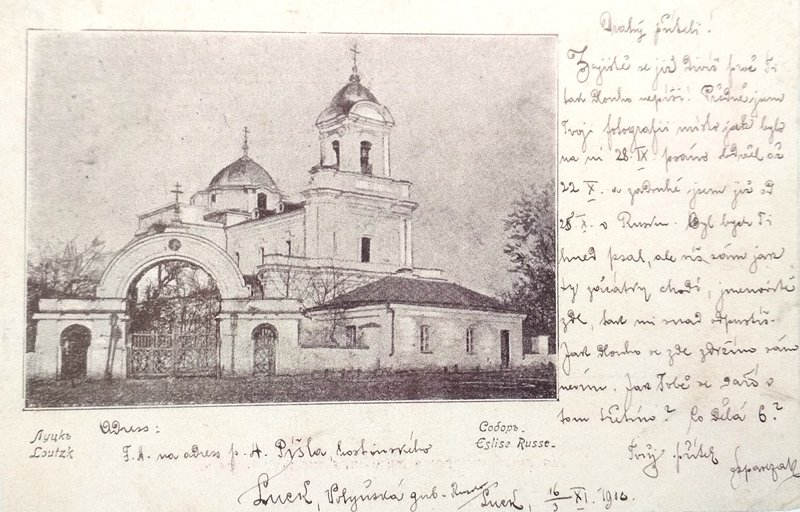 Drahý příteli!
Zajisté se již divíš proč Ti
tak dlouho nepíši! Předně jsem
Tvoji fotografii místo jak bylo
na ní 28. IX. psáno až
22 X. a zadruhé jsem již od
25. X. v Rusku. Byl bych Ti
hned psal, ale víš sám jak
ty začátky chodí, jmenovitě
zde, tak mi snad odpustíš.
Jak dlouho se zde zdržím sám
nevím. Jak Tobě se daří v
tom ? Co dělá 6.?
Tvůj přítel
Луцкъ
Loutzk
Соборъ.
Eglise Russe.
Adress:
F. A. na adress p. A. Píšla
Luck, Volyňská gub. Rusko
Luck, 16/3 XI. 1910.